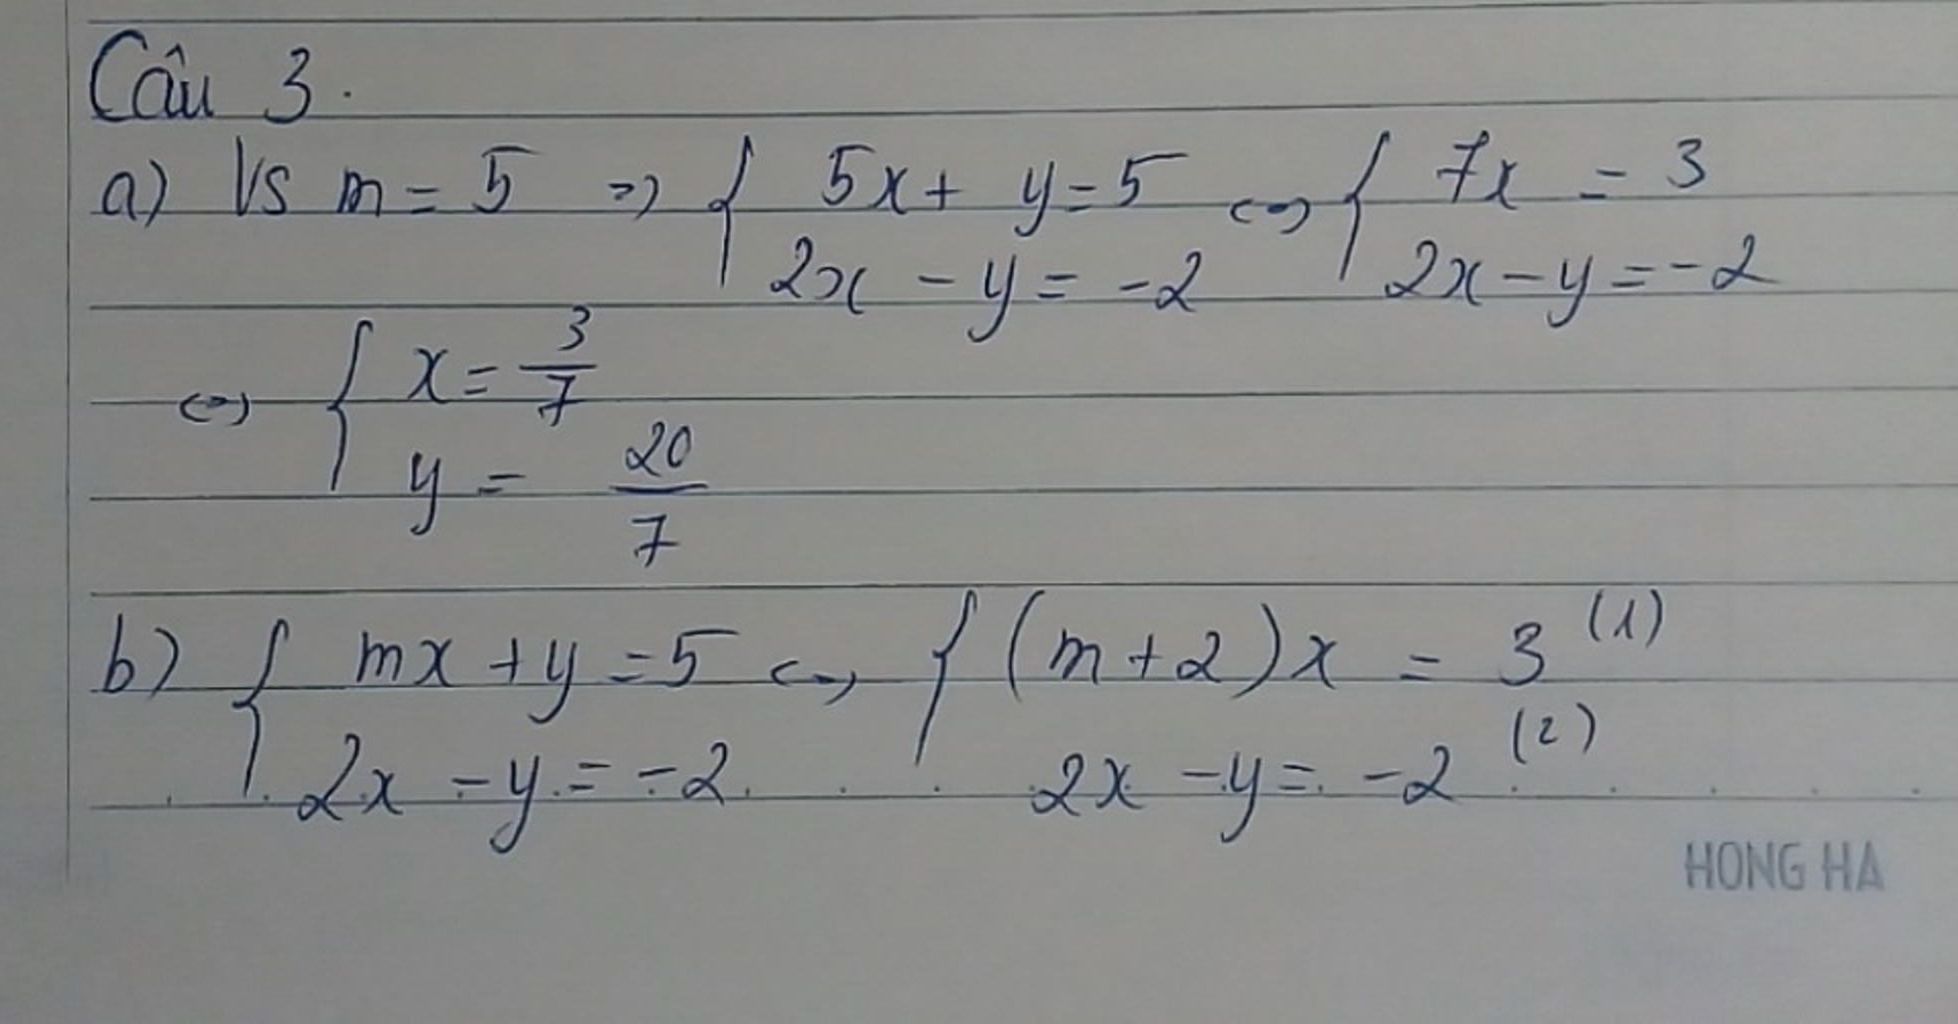 Câu 3.
a) Vs m = 5 => { 5x + y = 5 <=> { 7x = 3
2x - y = -2 2x - y = -2
<=> { x = 3/7
y = 20/7
b) { mx + y = 5 <=> { (m+2)x = 3 (1)
2x - y = -2 2x - y = -2 (2)
HONG HA